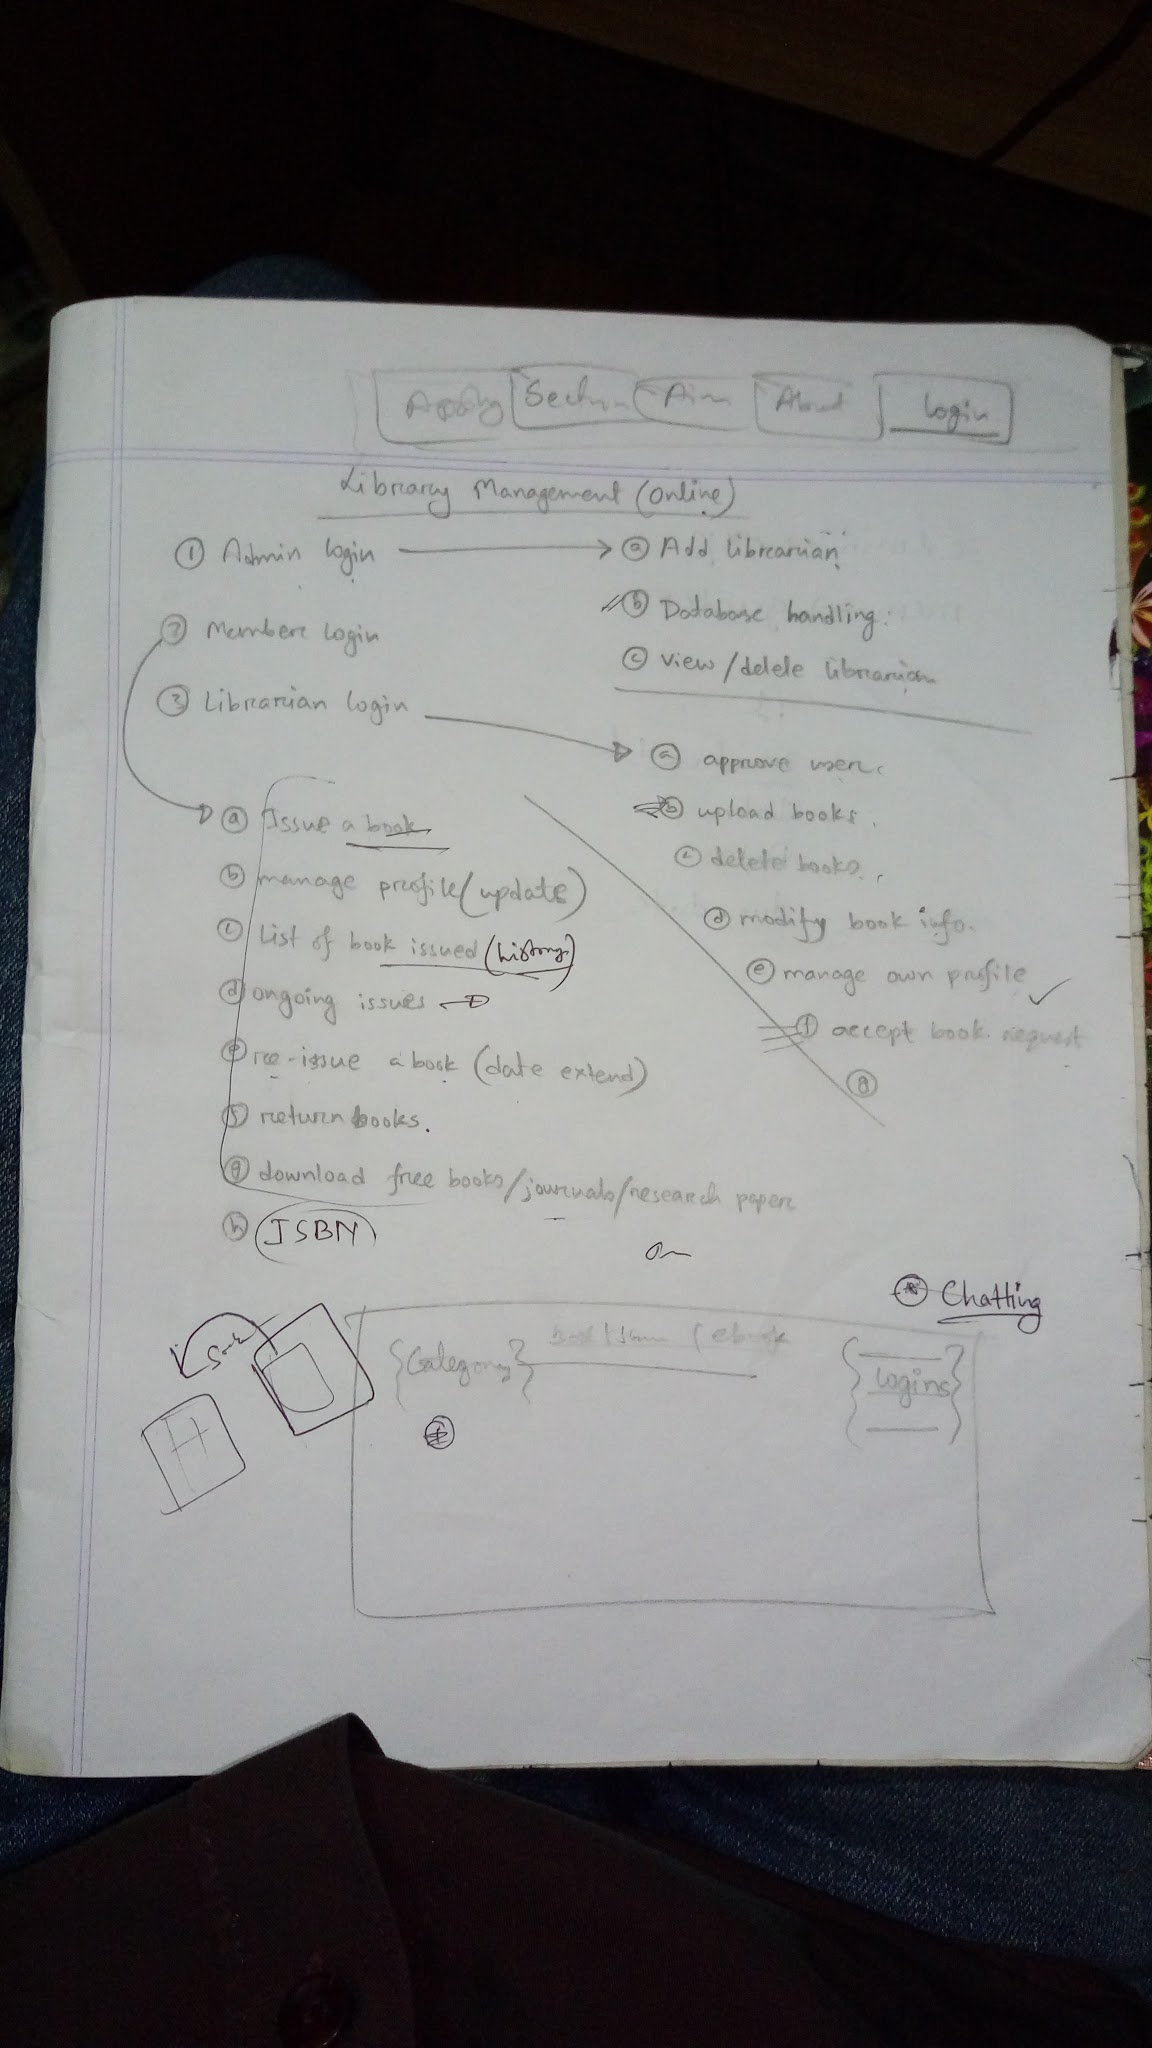 Apply Section Aim About Login
Library Management (Online)
① Admin login → ⓐ Add librarian
ⓑ Database handling.
② Member login
ⓒ view/delete librarian
③ Librarian login
ⓐ approve user.
ⓑ upload books.
ⓒ delete books.
ⓓ modify book info.
ⓔ manage own profile
ⓕ accept book request
ⓖ
ⓐ Issue a book
ⓑ manage profile (update)
ⓒ List of book issued (history)
ⓓ ongoing issues
ⓔ re-issue a book (date extend)
ⓕ return books.
ⓖ download free books/journals/research paper
ⓗ ISBN
Chatting
{Category} ebook
{logins}